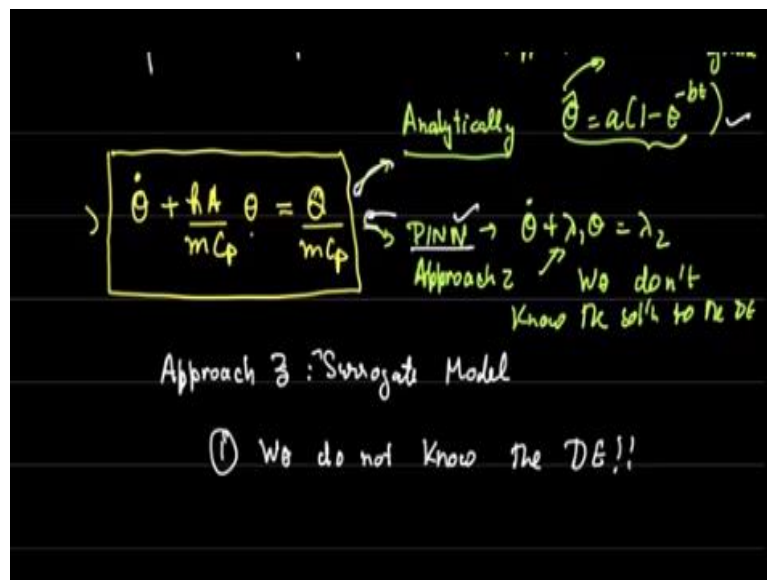 Analytically θ̂ = a(1 - e^{-bt})
θ̇ + hA/mCp θ = Q/mCp
PINN → θ̇ + λ₁θ = λ₂
Approach 2 We don't
Know the sol'n to the DE
Approach 3 : "Surrogate Model
① We do not Know the DE!!